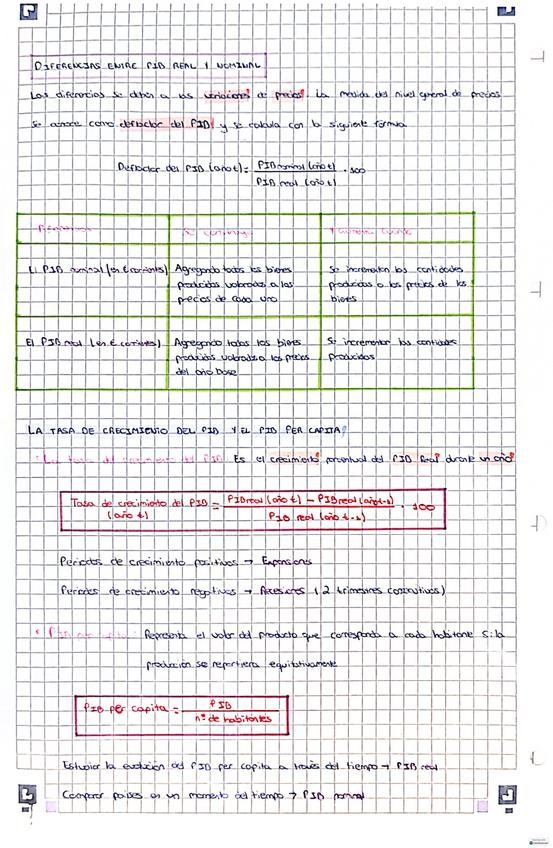 DIFERENCIAS ENTRE PIB REAL Y NOMINAL
Las diferencias se deben a las variaciones de precios. La medida del nivel general de precios
se conoce como deflactor del PIB y se calcula con la siguiente fórmula
Deflactor del PIB (año t) = PIB nominal (año t) / PIB real (año t) · 100
Se construye
Y aumenta cuando
El PIB nominal (en € corrientes)
Agregando todos los bienes
producidos valorados a los
precios de cada uno
Se incrementan las cantidades
producidas o los precios de los
bienes
El PIB real (en € corrientes)
Agregando todos los bienes
producidos valorados a los precios
del año base
Se incrementan las cantidades
producidas
LA TASA DE CRECIMIENTO DEL PIB Y EL PIB PER CAPITA
· La tasa de crecimiento del PIB: Es el crecimiento porcentual del PIB Real durante un año
Tasa de crecimiento del PIB (año t) = PIB real (año t) - PIB real (año t-1) / PIB real (año t-1) · 100
Periodos de crecimiento positivos → Expansiones
Periodos de crecimiento negativos → Recesiones (2 trimestres consecutivos)
· PIB per capita: Representa el valor del producto que corresponda a cada habitante si la
producción se repartiera equitativamente
PIB per capita = PIB / nº de habitantes
Estudiar la evolución del PIB per capita a través del tiempo → PIB real
Comparar países en un momento del tiempo → PIB nominal